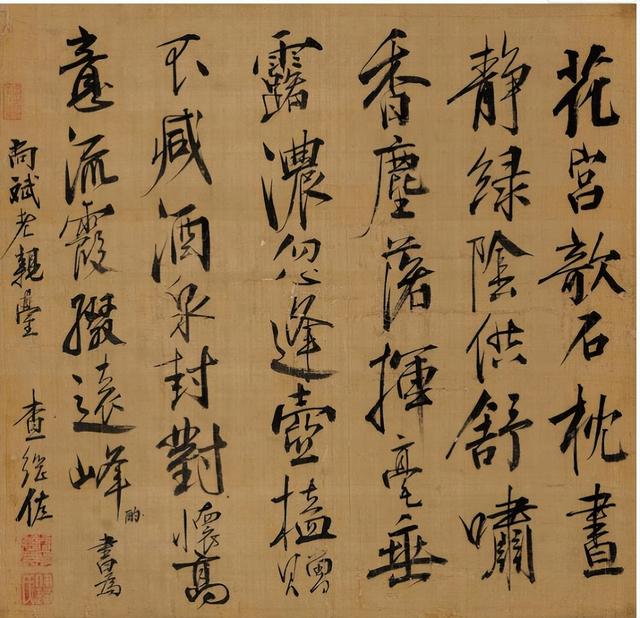 花宮欹石枕晝
靜綠陰供舒嘯
香塵落揮毫垂
露濃忽逢壺榼贈
不減酒泉封對懷高
意流霞綴遠峰 酌 書為
尚斌老親臺 查繼佐